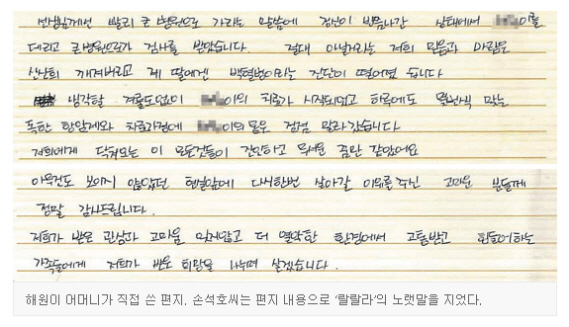 선생님께선 빨리 큰 병원으로 가라는 말씀에 정신이 빠져나간 상태에서 이를
데리고 큰병원으로가 검사를 받았습니다. 절대 아닐거라는 저희 믿음과 바람은
산산히 깨져버리고 제 딸에겐 백혈병이라는 진단이 떨어졌습니다
생각할 겨를도없이 이의 치료가 시작되었고 하루에도 몇번씩 맞는
독한 항암제와 치료과정에 이의 몸은 점점 말라갔습니다
저희에게 닥쳐오는 이 모든것들이 잔인하고 무서운 꿈만 같았어요
아무것도 보이지 않았던 현실앞에 다시한번 살아갈 이유를 주신 고마운 분들께
정말 감사드립니다.
저희가 받은 관심과 고마움 잊지않고 더 열악한 환경에서 고통받고 힘들어하는
가족들에게 저희가 받은 희망을 나누며 살겠습니다.
해원이 어머니가 직접 쓴 편지. 손석호씨는 편지 내용으로 '랄랄라'의 노랫말을 지었다.